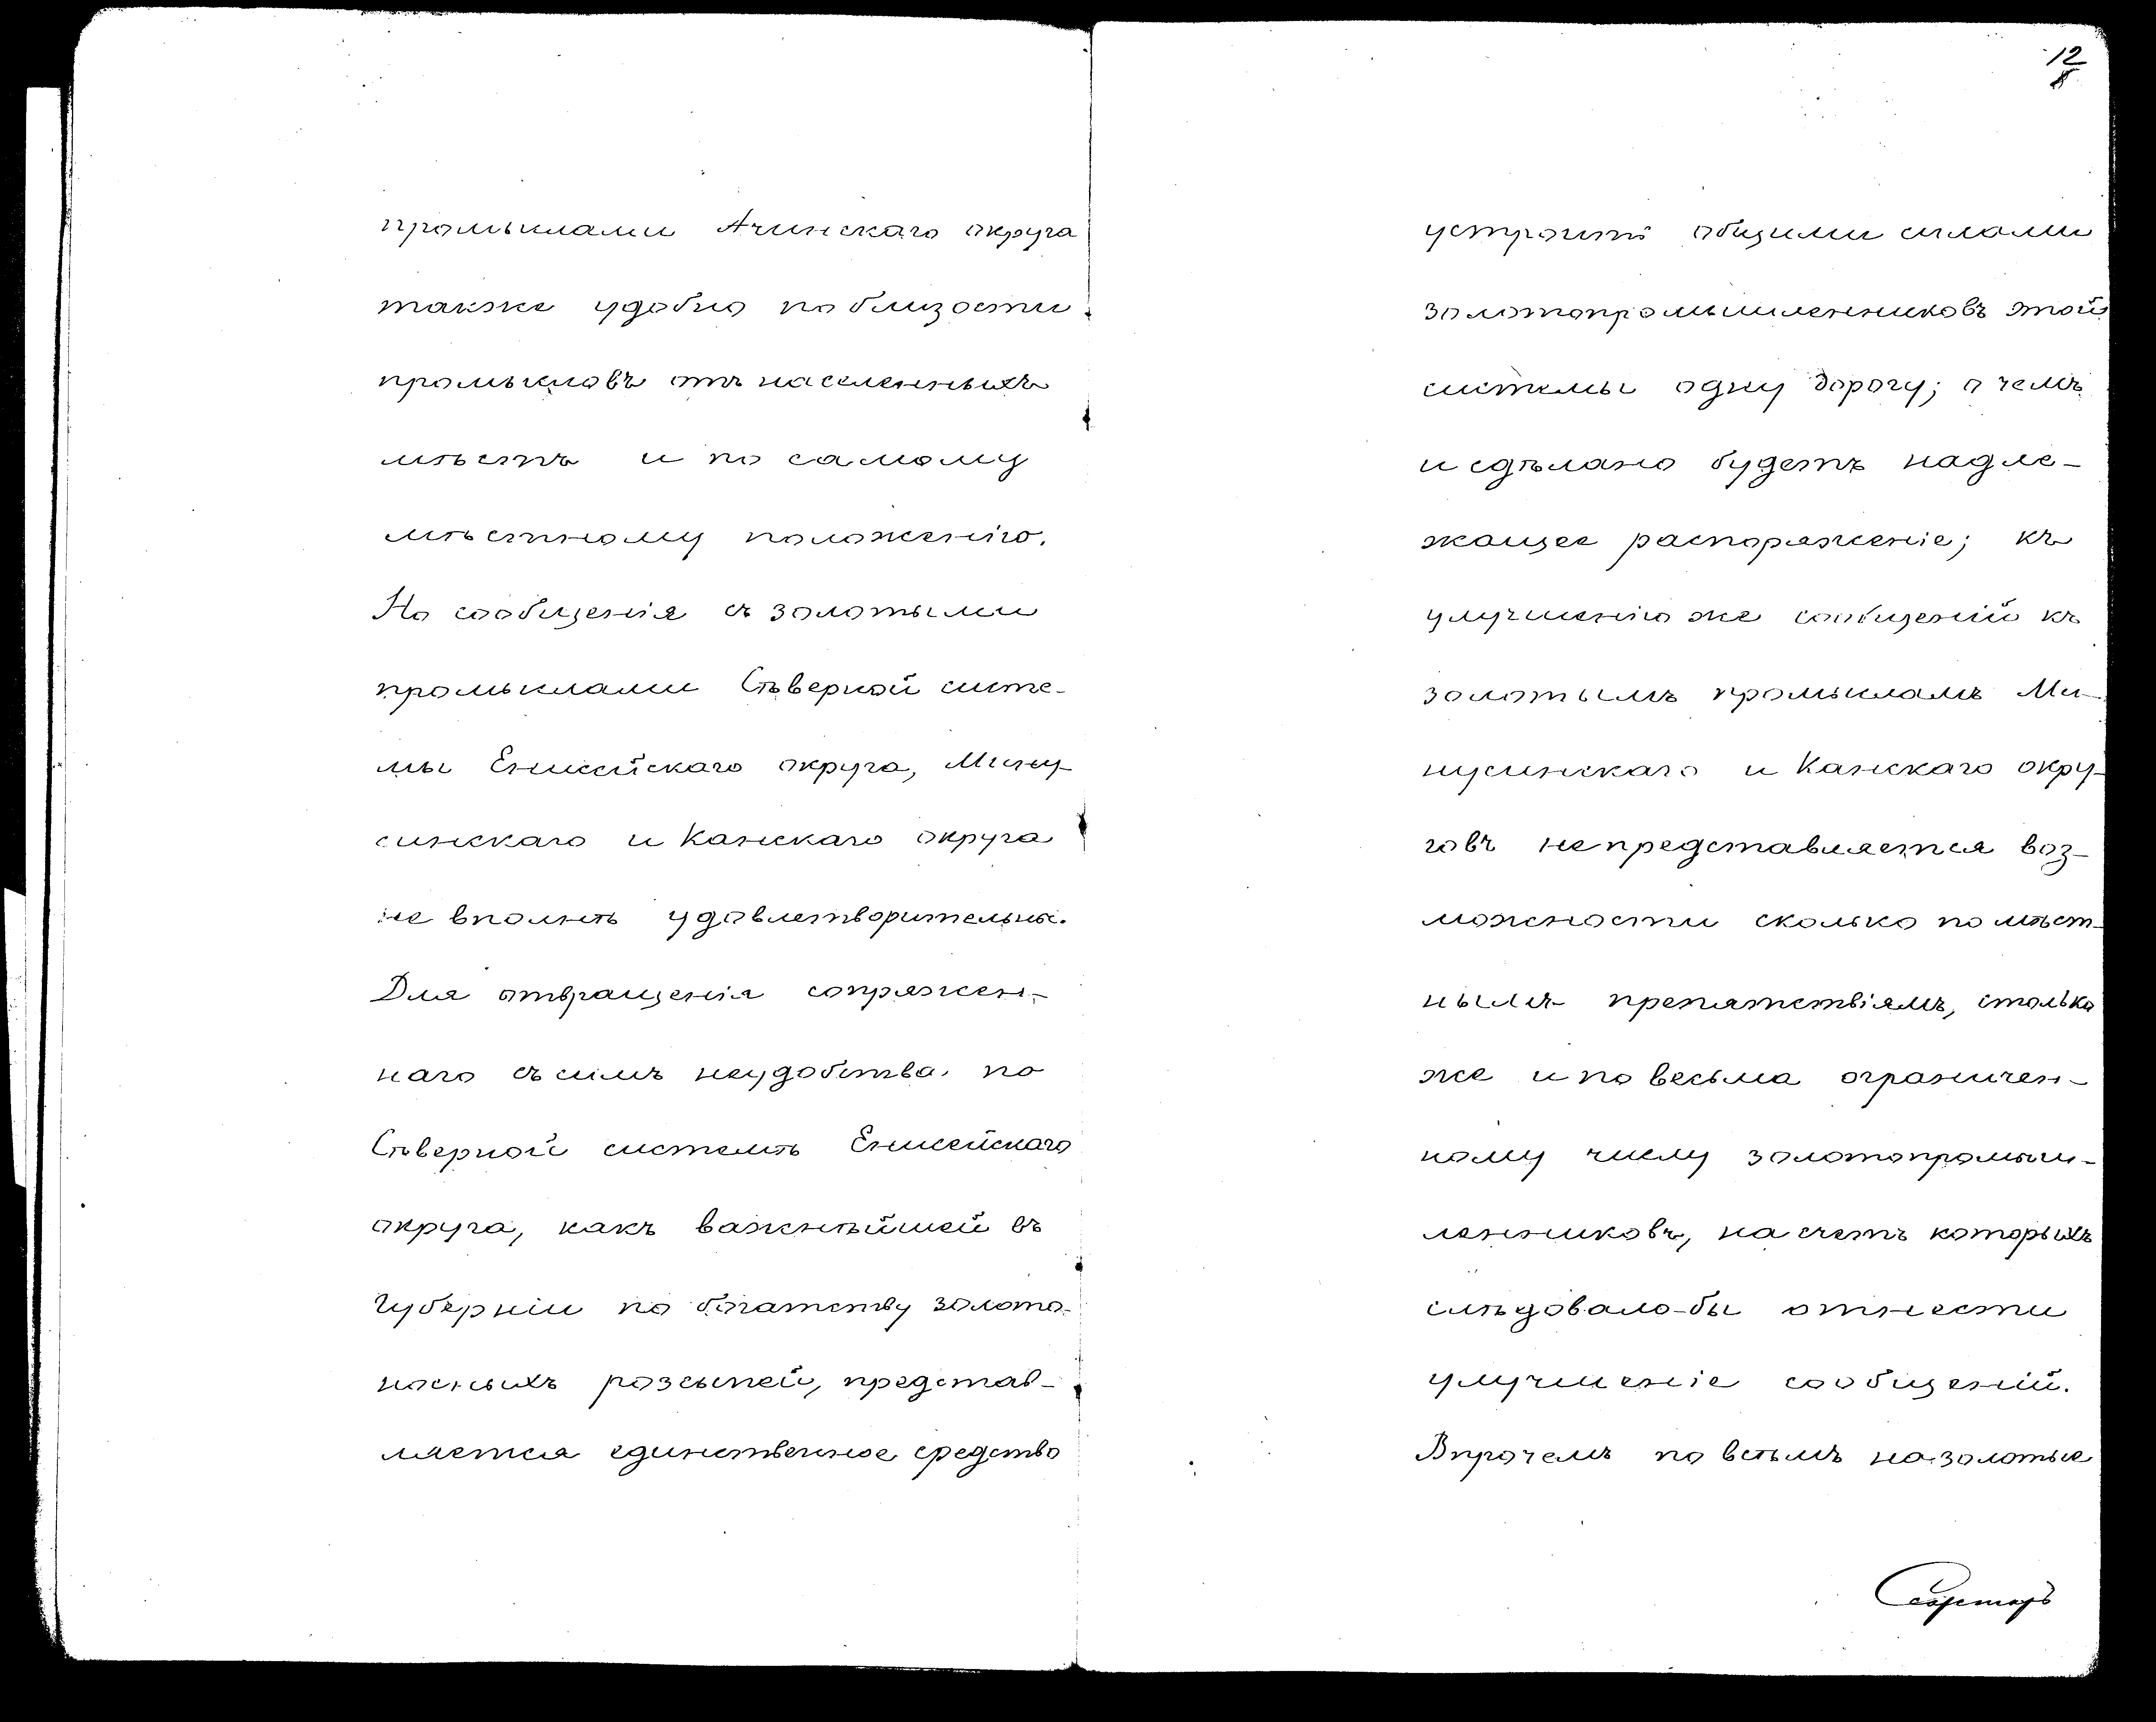 промыслами Ачинскаго округа
также удобно по близости
промысловъ отъ населенныхъ
мѣстъ и по самому
мѣстному положенію.
Но сообщенія съ золотыми
промыслами Сѣверной систе-
мы Енисейскаго округа, Мину-
синскаго и Канскаго округа
не вполнѣ удовлетворительны.
Для отвращенія сопряжен-
наго съ симъ неудобства по
Сѣверной системѣ Енисейскаго
округа, какъ важнѣйшей въ
Губерніи по богатству золото-
носныхъ розсыпей, представ-
ляется единственное средство
12
устроить общими силами
золотопромышленниковъ этой
системы одну дорогу; о чемъ
и сдѣлано будетъ надле-
жащее распоряженіе; къ
улучшенію же сообщеній къ
золотымъ промысламъ Ми-
нусинскаго и Канскаго окру-
говъ не представляется воз-
можности сколько по мѣст-
нымъ препятствіямъ, столько
же и по весьма ограничен-
ному числу золотопромыш-
ленниковъ, на счетъ которыхъ
слѣдовало-бы отнести
улучшеніе сообщеній.
Впрочемъ по всѣмъ на золотые